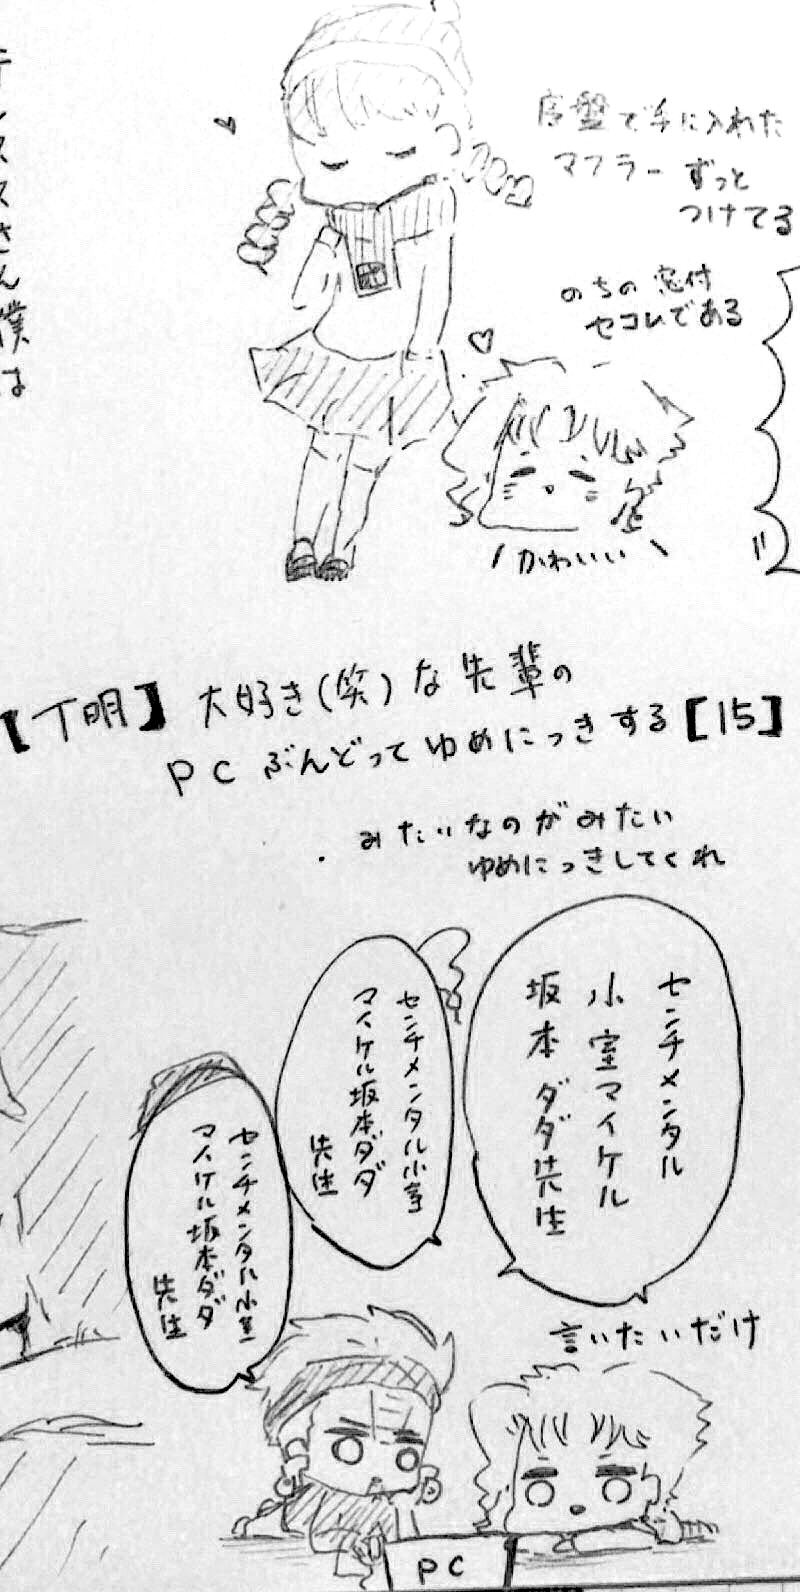 テンススさん僕は
序盤で手に入れた
マフラー ずっと
つけてる
のちの窓付
セコムである
かわいい
【丁明】大好き(笑)な先輩の
PCぶんどってゆめにっきする【15】
・みたいなのがみたい
ゆめにっきしてくれ
センチメンタル
小室マイケル
坂本ダダ先生
センチメンタル小室
マイケル坂本ダダ
先生
センチメンタル小室
マイケル坂本ダダ
先生
言いたいだけ
PC